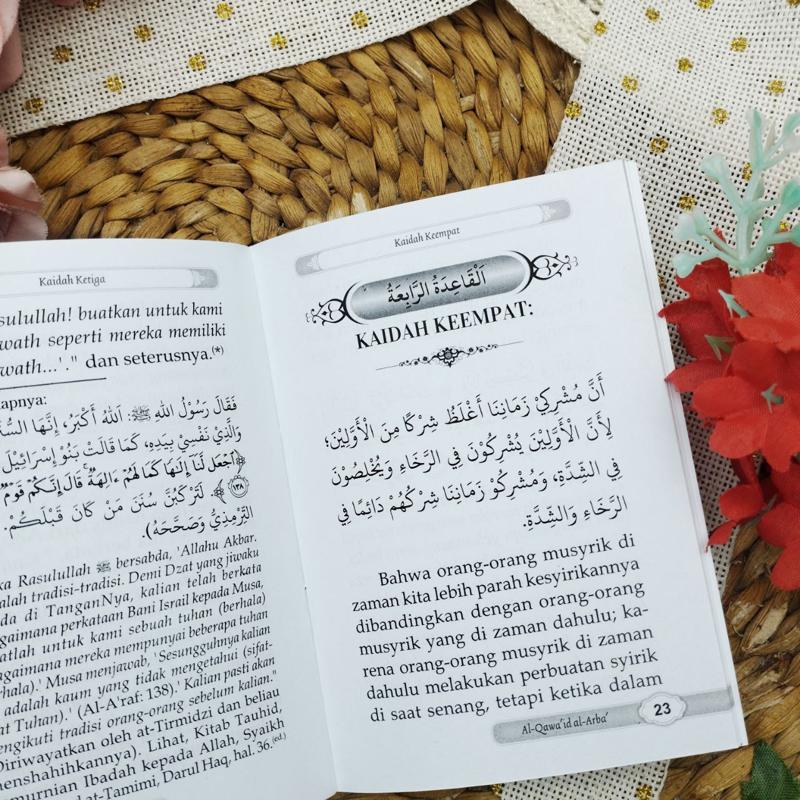 Kaidah Ketiga
sulullah! buatkan untuk kami
wath seperti mereka memiliki
wath...'." dan seterusnya.(*)
apnya:
فَقَالَ رَسُوْلُ اللهِ ﷺ: اَللهُ أَكْبَرُ، إِنَّهَا السُّنَ
وَالَّذِيْ نَفْسِيْ بِيَدِهِ، كَمَا قَالَتْ بَنُوْ إِسْرَائِيْلَ
﴿اجْعَل لَّنَا إِلَـٰهًا كَمَا لَهُمْ ءَالِهَةٌ قَالَ إِنَّكُمْ قَوْمٌ
﴿١٣٨﴾، لَتَرْكَبُنَّ سُنَنَ مَنْ كَانَ قَبْلَكُمْ.
التِّرْمِذِيُّ وَصَحَّحَهُ).
ka Rasulullah ﷺ bersabda, 'Allahu Akbar.
alah tradisi-tradisi. Demi Dzat yang jiwaku
da di TanganNya, kalian telah berkata
agaimana perkataan Bani Israil kepada Musa,
atlah untuk kami sebuah tuhan (berhala)
agaimana mereka mempunyai beberapa tuhan
rhala).' Musa menjawab, 'Sesungguhnya kalian
adalah kaum yang tidak mengetahui (sifat-
at Tuhan).' (Al-A'raf: 138).' Kalian pasti akan
engikuti tradisi orang-orang sebelum kalian."
Diriwayatkan oleh at-Tirmidzi dan beliau
enshahihkannya). Lihat, Kitab Tauhid,
murnian Ibadah kepada Allah, Syaikh
at-Tamimi, Darul Haq, hal. 36.(ed.)
Kaidah Keempat
اَلْقَاعِدَةُ الرَّابِعَةُ
KAIDAH KEEMPAT:
أَنَّ مُشْرِكِيْ زَمَانِنَا أَغْلَظُ شِرْكًا مِنَ الْأَوَّلِيْنَ؛
لِأَنَّ الْأَوَّلِيْنَ يُشْرِكُوْنَ فِي الرَّخَاءِ وَيُخْلِصُوْنَ
فِي الشِّدَّةِ، وَمُشْرِكُوْ زَمَانِنَا شِرْكُهُمْ دَائِمًا فِي
الرَّخَاءِ وَالشِّدَّةِ.
Bahwa orang-orang musyrik di
zaman kita lebih parah kesyirikannya
dibandingkan dengan orang-orang
musyrik yang di zaman dahulu; ka-
rena orang-orang musyrik di zaman
dahulu melakukan perbuatan syirik
di saat senang, tetapi ketika dalam
Al-Qawa'id al-Arba'
23